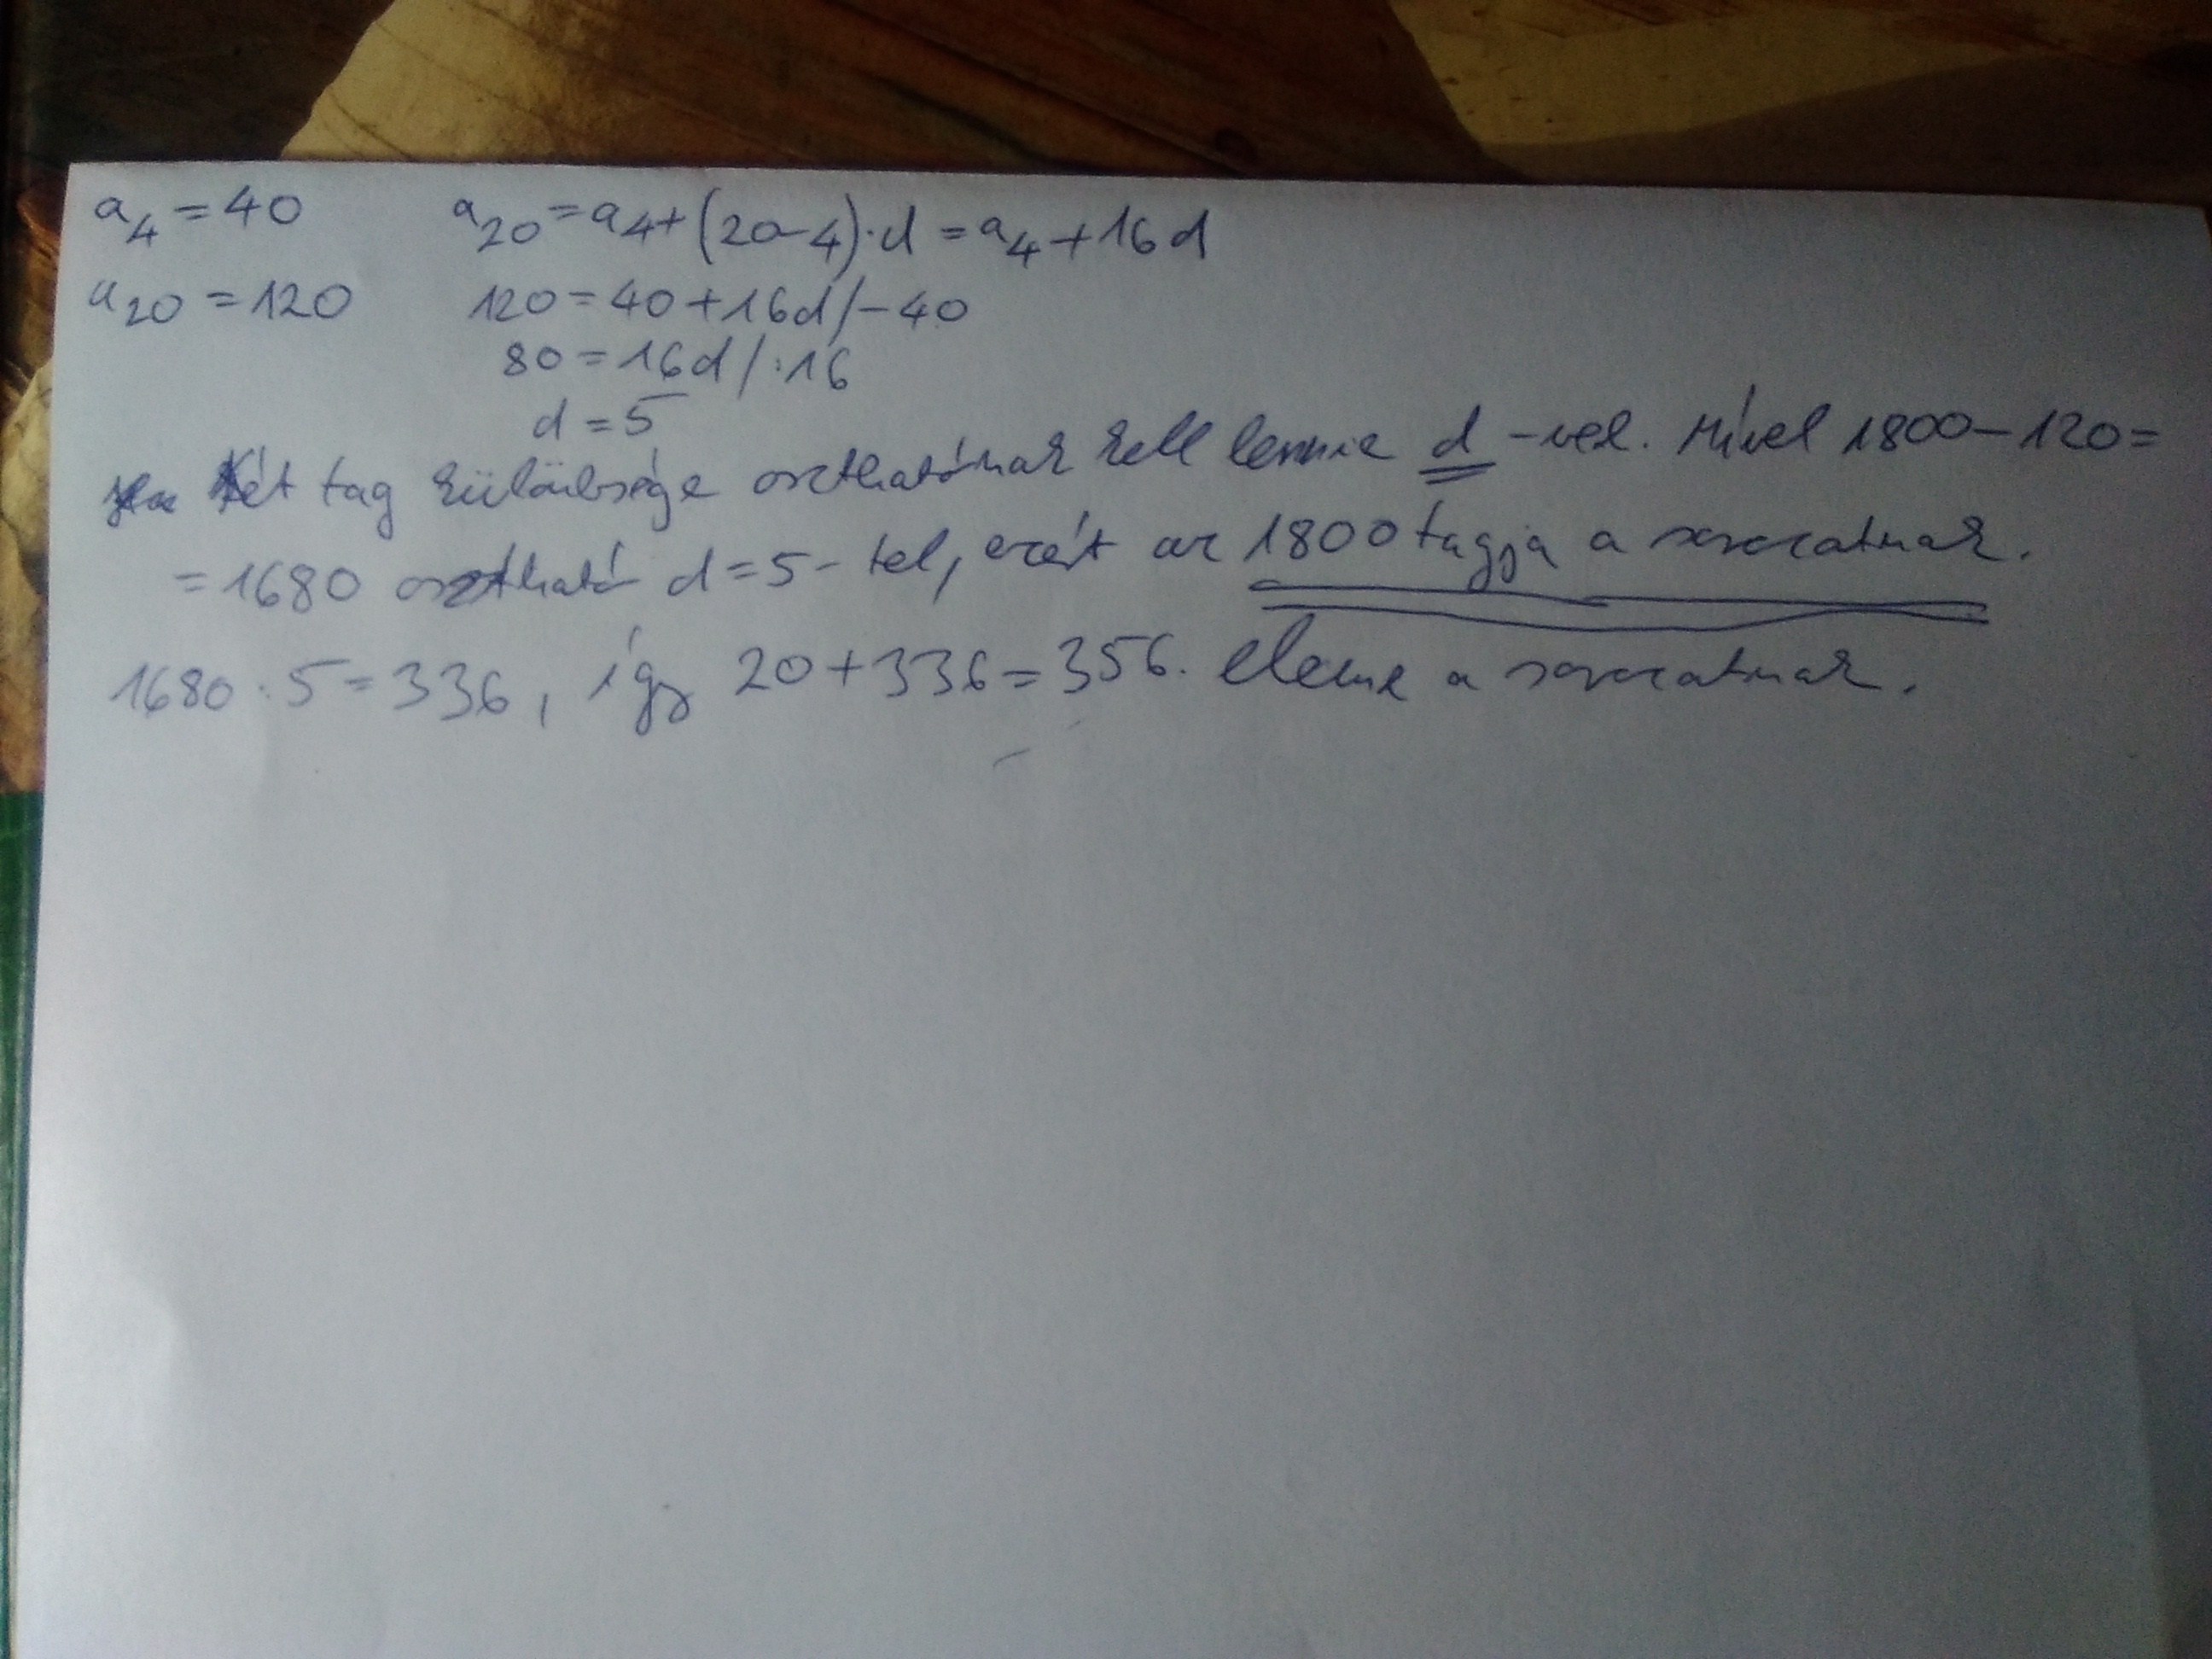 a₄ = 40 a₂₀ = a₄ + (20-4)·d = a₄ + 16d
a₂₀ = 120 120 = 40 + 16d /-40
80 = 16d / :16
d = 5
Két tag különbsége oszthatónak kell lennie d -vel. Mivel 1800-120=
=1680 osztható d=5-tel, ezért az 1800 tagja a sorozatnak.
1680:5=336, így 20+336=356. eleme a sorozatnak.